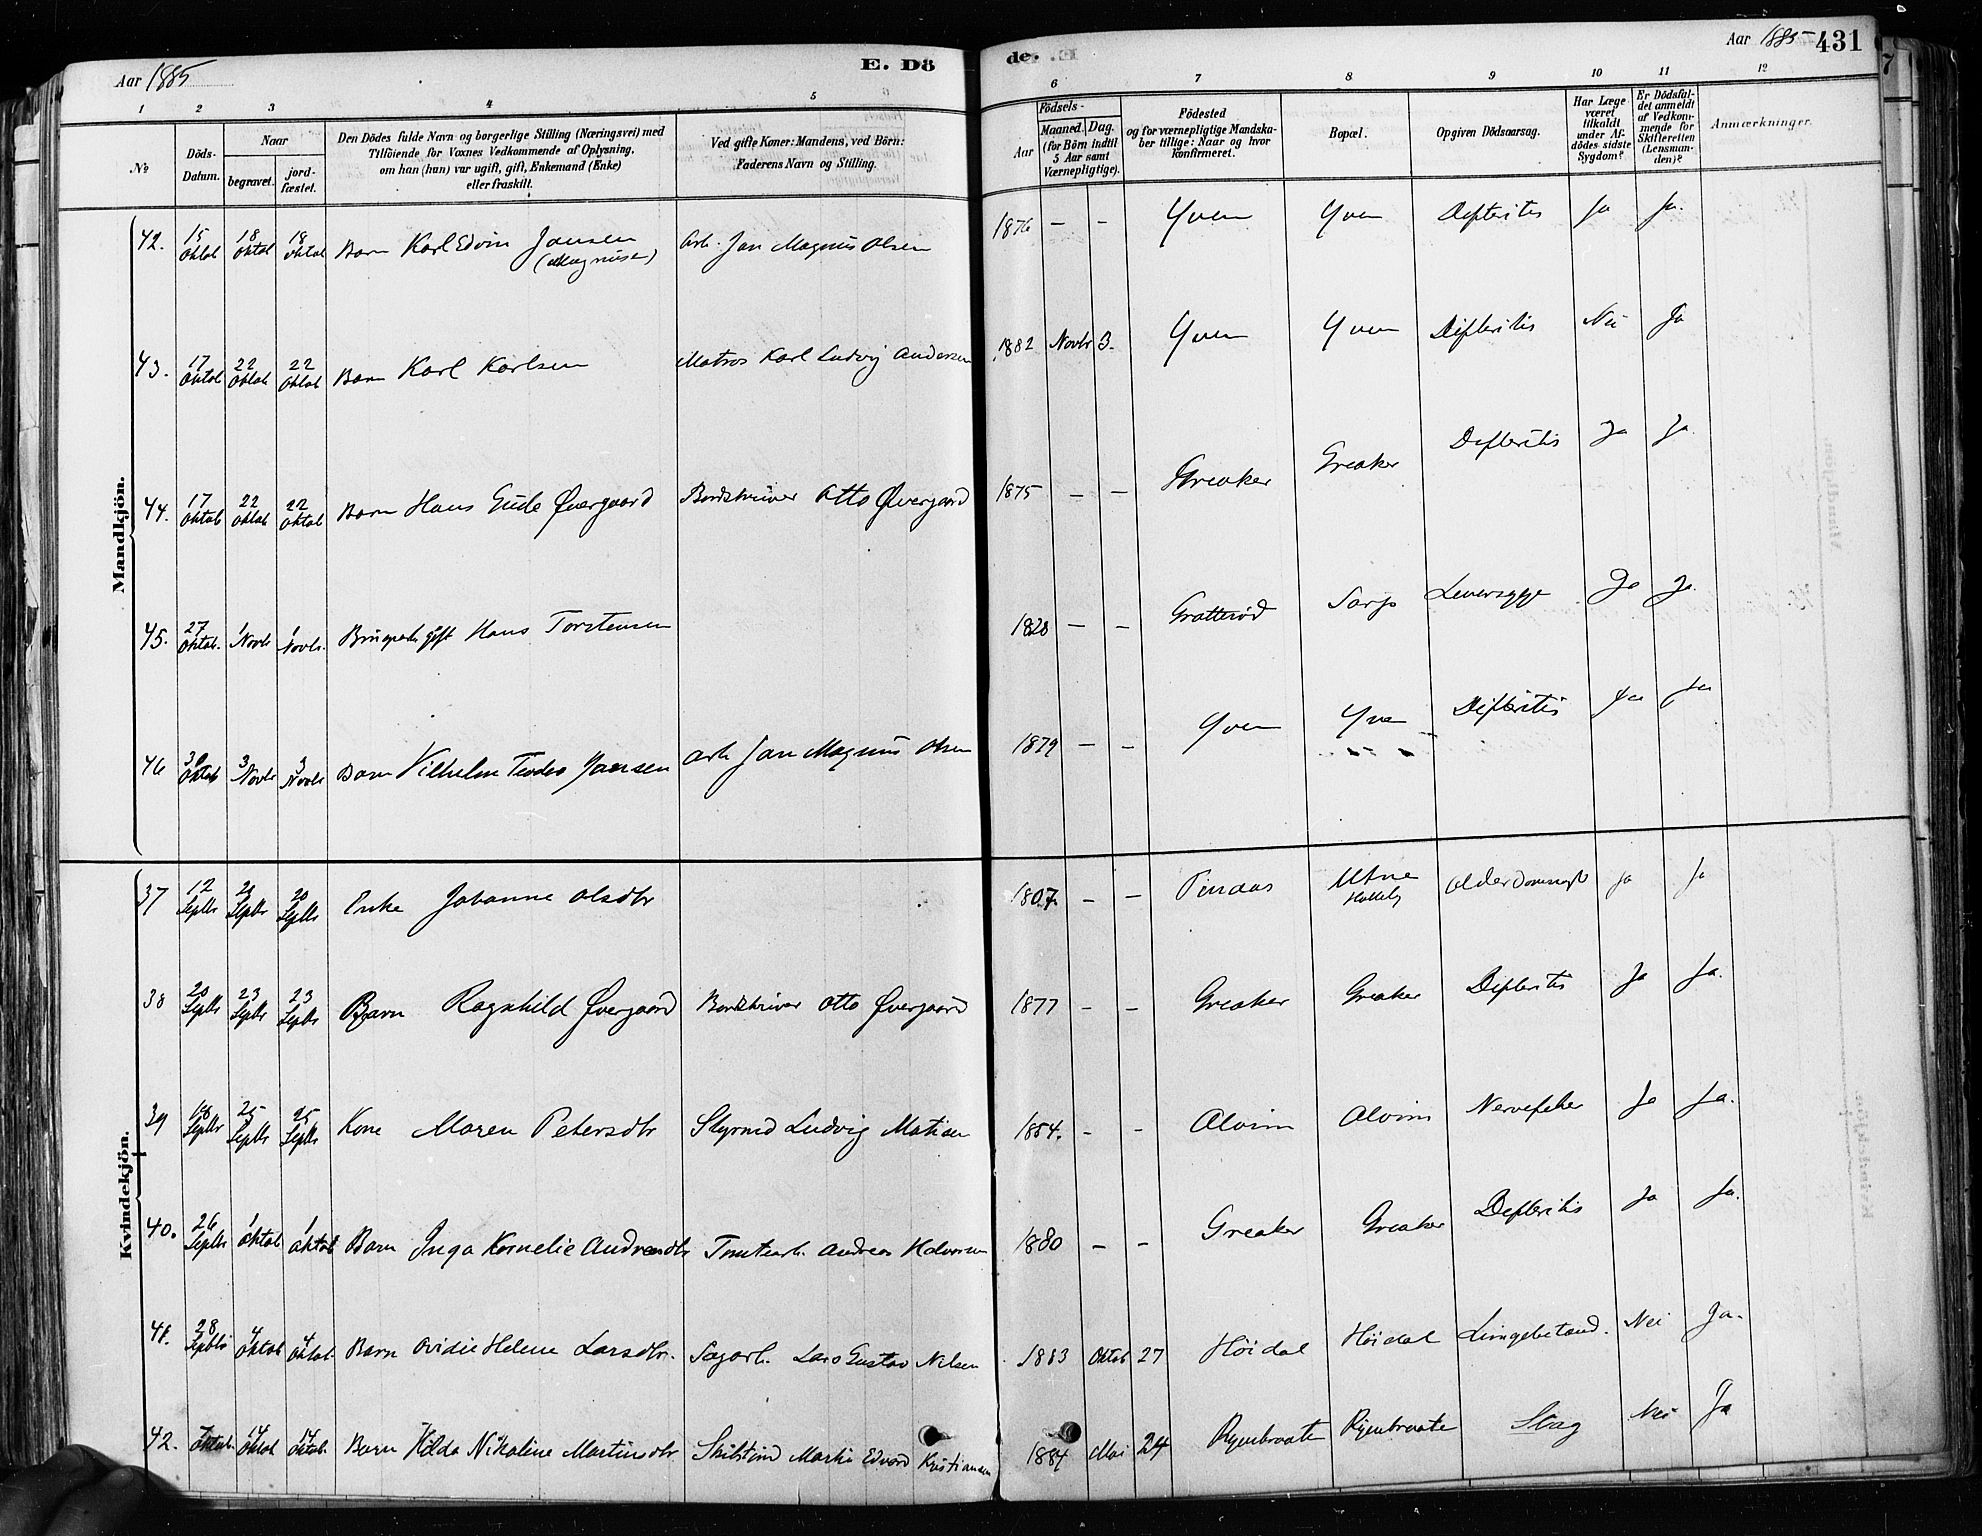 Aar 1885
E. Dö
de.
Aar 1885
431
1 2 3 4 5 6 7 8 9 10 11 12
No
Döds-
Datum.
Naar
begravet.
jord-
fæstet.
Den Dödes fulde Navn og borgerlige Stilling (Næringsvei) med
Tilföiende for Voxnes Vedkommende af Oplysning,
om han (hun) var ugift, gift, Enkemand (Enke)
eller fraskilt.
Ved gifte Koner: Mandens, ved Börn:
Faderens Navn og Stilling.
Födsels-
Aar
Maaned.
Dag.
(for Börn indtil
5 Aar samt
Værnepligtige).
Födested
og for værnepligtige Mandska-
ber tillige: Naar og hvor
konfirmeret.
Bopæl.
Opgiven Dödsaarsag.
Har Læge
været
tilkaldt
under Af-
dødes sidste
Sygdom?
Er Dödsfal-
det anmeldt
af Vedkom-
mende for
Skifteretten
(Lensman-
den)?
Anmærkninger.
Mandkjön.
42. 15 Oktob 18 Oktob 18 Oktob Barn Karl Edvin Jansen (Magnusen) Arb. Jan Magnus Olsen 1876 - - Yven Yven Difteritis Ja Ja.
43. 17 Oktob 22 Oktob 22 Oktob Barn Karl Karlsen Matros Karl Ludvig Andersen 1882 Novbr 3. Yven Yven Difteritis Nei Ja
44. 17 Oktob 22 Oktob 22 Oktob Barn Hans Gude Øvergaard Bordskriver Otto Øvergaard 1875 - - Greaker Greaker Difteritis Ja Ja
45. 27 Oktob. 1 Novbr 1 Novbr. gift Hans Torstensen 1828 - - Gratterød Sarp Leversyge Ja Ja.
46 30 Oktob 3 Novbr 3 Novbr Barn Vilhelm Teodor Jansen Arb. Jan Magnus Olsen 1879 - - Yven Yven Difteritis Ja Ja
Kvindekjön.
37 12 Septbr 20 Septbr 20 Septbr Enke Johanne Olsdtr 1807. - - Pindaas Utne Alderdomssvagh Ja Ja
38 20 Septbr 23 Septbr 23 Septbr Barn Ragnhild Øvergaard Bordskriver Otto Øvergaard 1877 - - Greaker Greaker Difteritis Ja Ja.
39 18 Septbr 25 Septbr 25 Septbr Kone Maren Petersdtr Styrmd Ludvig Matisen 1854. - - Alvim Alvim Nervefeber Ja Ja.
40. 26 Septbr 1 Oktob 1 Oktob Barn Inga Kornelie Andreasdtr Tomtearb. Andreas Halvorsen 1880 - - Greaker Greaker Difteritis Ja Ja.
41. 28 Septbr 4 Oktob 4 Oktob Barn Ovidie Helene Larsdtr. Sagarb. Lars Gustav Nilsen 1883 Oktob 27 Høidal Høidal Lungebetænd. Nei Ja.
42. 7 Oktob. 14 Oktob 14 Oktob. Barn Hilda Nikoline Martinsdtr. Martin Edvard Kristiansen 1884 Mai 24 Ryenbraate Ryenbraate Slag Nei Ja